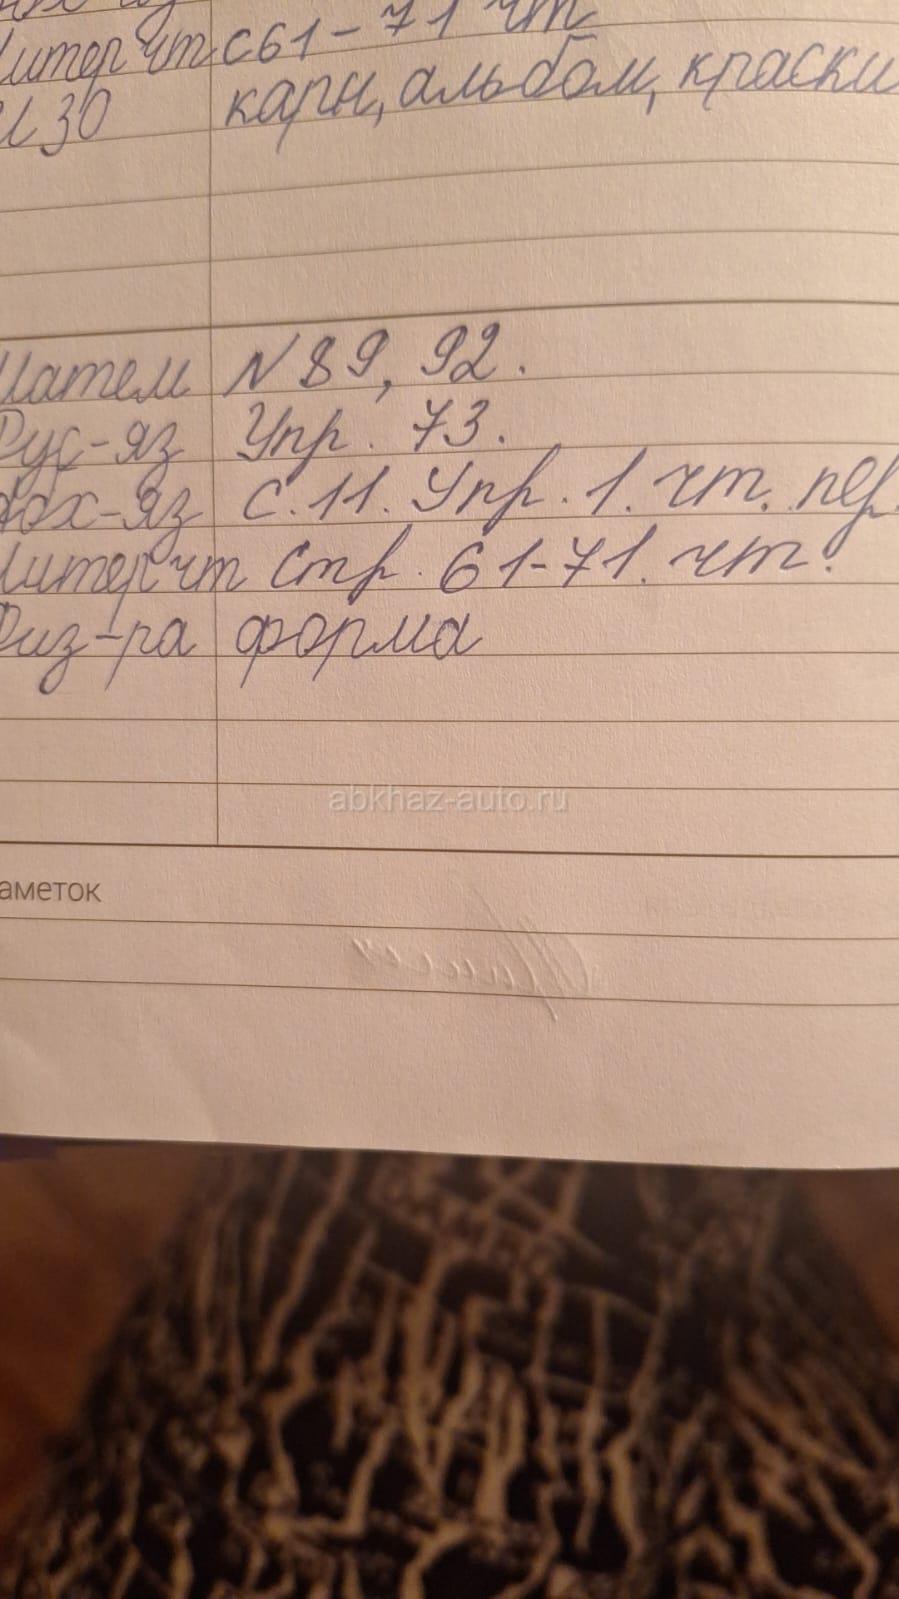 Литер чт с 61-71 чт
ИЗО карн, альбом, краски
Матем N 89, 92.
Рус-яз Упр. 73.
С. 11. Упр. 1. чт. пер.
Литер чт Стр. 61-71. чт.
Физ-ра форма
abkhaz-auto.ru
аметок